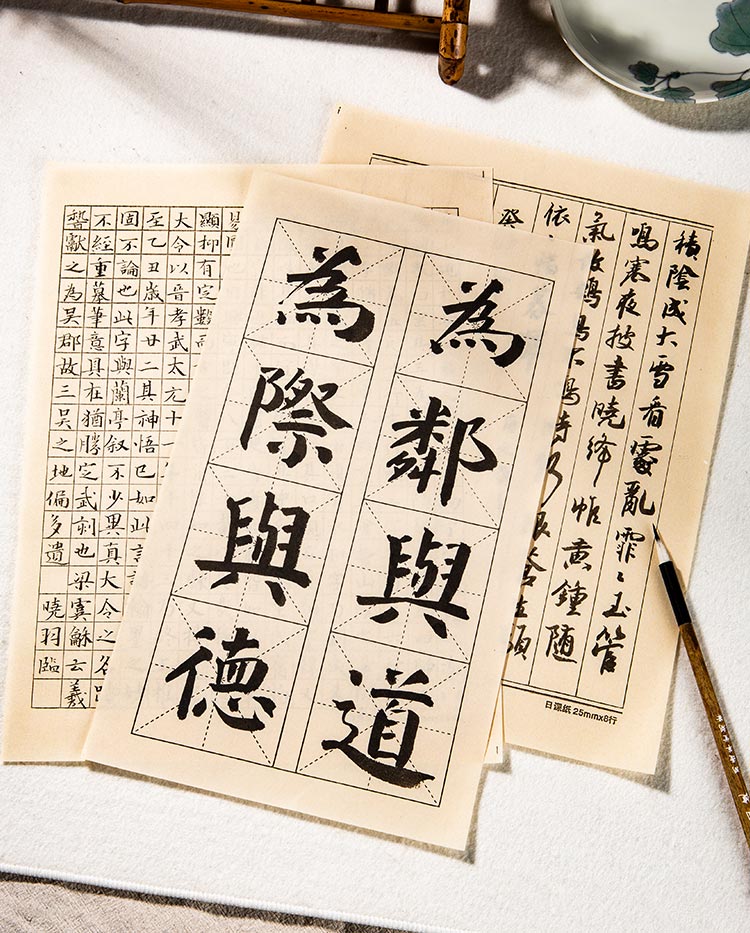 為鄰與道
為際與德
積陰成大雪看處亂霏〻玉管
鳴寒夜披書曉絳帷黃鐘隨
氣改鷃鳥不鳴時何限蒼生類
依
癸
日課紙 25mmx8行
顯抑有定數
大令以晉孝武太元十一
至乙丑歲年廿二具神悟已如此
固不論也此字與蘭亭叙不少異真大令之名
不經重摹筆意具在猶勝定武刻也梁虞龢云羲
獻之為吳郡故三吳之地偏多遺
曉羽臨